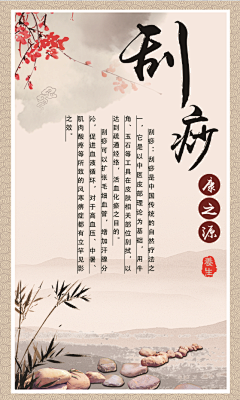 刮痧
康之源
养生
刮痧：刮痧是中国传统的自然疗法之
一，它是以中医皮部理论为基础，用牛
角、玉石等工具在皮肤相关部位刮拭，以
达到疏通经络、活血化瘀之目的。
刮痧可以扩张毛细血管，增加汗腺分
泌，促进血液循环，对于高血压、中暑、
肌肉酸疼等所致的风寒痹症都有立竿见影
之效。